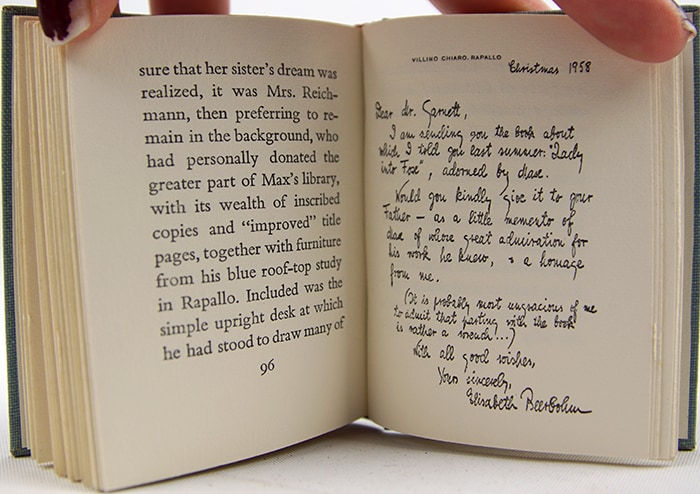 sure that her sister's dream was
realized, it was Mrs. Reich-
mann, then preferring to re-
main in the background, who
had personally donated the
greater part of Max's library,
with its wealth of inscribed
copies and "improved" title
pages, together with furniture
from his blue roof-top study
in Rapallo. Included was the
simple upright desk at which
he had stood to draw many of
96
VILLINO CHIARO, RAPALLO
Christmas 1958
Dear Dr. Garnett,
I am sending you the book about
which I told you last summer: "Lady
into Fox", adorned by Max.
Would you kindly give it to your
Father – as a little memento of
Max of whose great admiration for
his work he knew, & a homage
from me.
(It is probably most ungracious of me
to admit that parting with the book
is rather a wrench...)
With all good wishes,
Yours sincerely,
Elisabeth Beerbohm